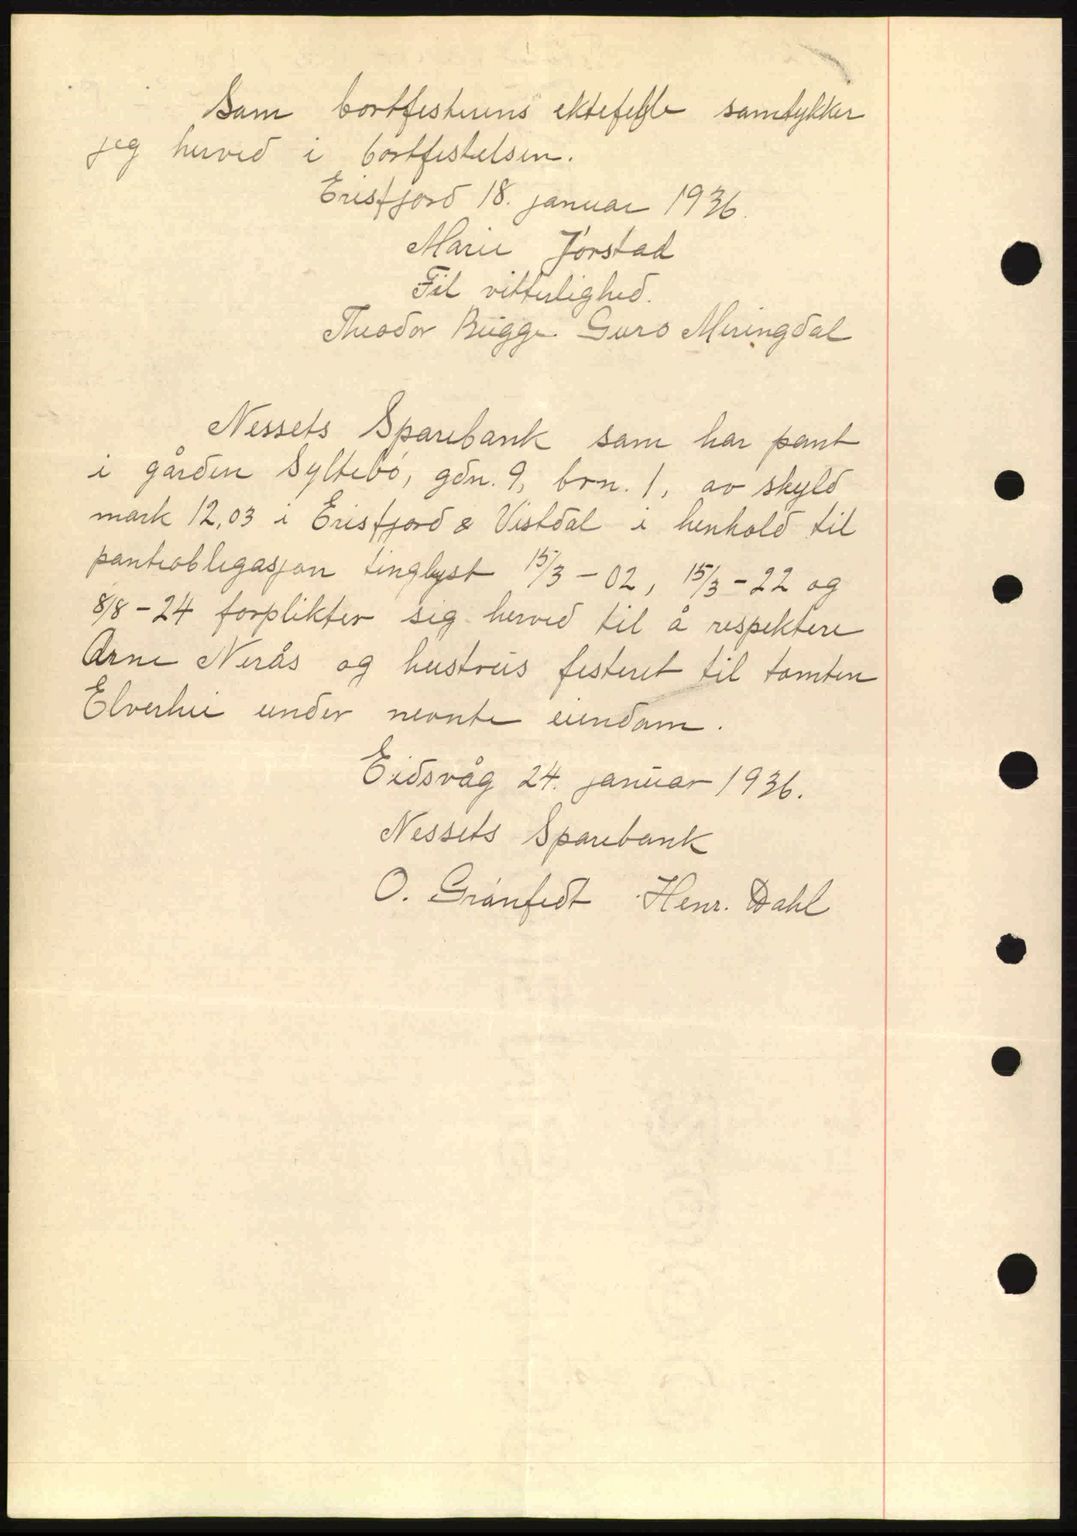 Som bortfesterens ektefelle samtykker
jeg herved i bortfestelsen.
Erisfjord 18. januar 1936.
Marie Jórstad
Til vitterlighed.
Theodor Bugge Guro Meringdal
Nessets Sparebank som har pant
i gården Syltebó, gdn. 9, brn. 1, av skyld
mark 12,03 i Erisfjord & Vistdal i henhold til
panteobligasjon tinglyst 15/3 - 02, 15/3 - 22 og
8/8 - 24 forplikter sig herved til å respektere
Arne Nerås og hustrus festeret til tomten
Elverhei under nevnte eiendom.
Eidsvåg 24. januar 1936.
Nessets Sparebank
O. Grónfedt Henr. Dahl